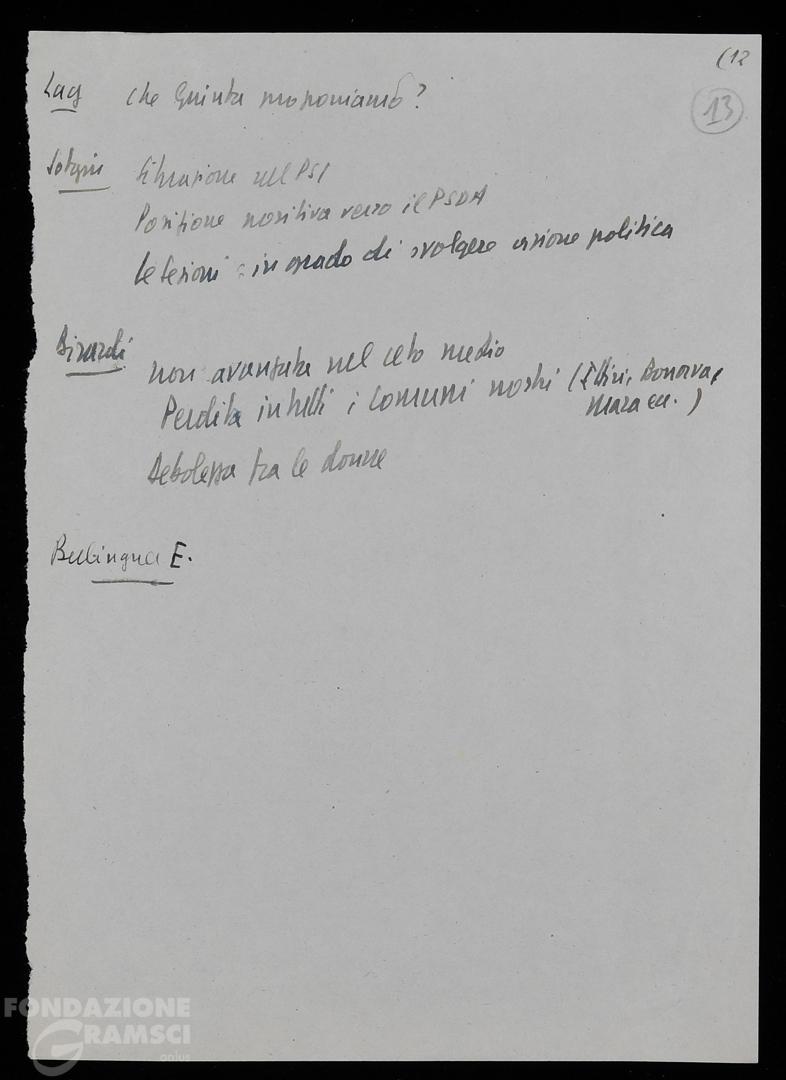 (12
13
Lay che Giunta proponiamo?
Sotgiu Situazione nel PSI
Posizione positiva verso il PSDA
Le sezioni: in grado di svolgere azione politica
Birardi non avanzata nel ceto medio
Perdita in tutti i Comuni nostri (Ittiri, Bonorva,
Mara ecc.)
Debolezza tra le donne
Berlinguer E.
FONDAZIONE
GRAMSCI
onlus